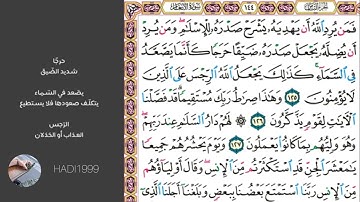 سورة الأنعام
١٤٤
فَمَن يُرِدِ ٱللَّهُ أَن يَهْدِيَهُۥ يَشْرَحْ صَدْرَهُۥ لِلْإِسْلَٰمِ ۖ وَمَن يُرِدْ
أَن يُضِلَّهُۥ يَجْعَلْ صَدْرَهُۥ ضَيِّقًا حَرَجًا كَأَنَّمَا يَصَّعَّدُ
فِى ٱلسَّمَآءِ ۚ كَذَٰلِكَ يَجْعَلُ ٱللَّهُ ٱلرِّجْسَ عَلَى ٱلَّذِينَ
لَا يُؤْمِنُونَ ١٢٥ وَهَٰذَا صِرَٰطُ رَبِّكَ مُسْتَقِيمًا ۗ قَدْ فَصَّلْنَا
ٱلْءَايَٰتِ لِقَوْمٍ يَذَّكَّرُونَ ١٢٦ لَهُمْ دَارُ ٱلسَّلَٰمِ عِندَ رَبِّهِمْ ۖ
وَهُوَ وَلِيُّهُم بِمَا كَانُوا۟ يَعْمَلُونَ ١٢٧ وَيَوْمَ يَحْشُرُهُمْ جَمِيعًا
يَٰمَعْشَرَ ٱلْجِنِّ قَدِ ٱسْتَكْثَرْتُم مِّنَ ٱلْإِنسِ ۖ وَقَالَ أَوْلِيَآؤُهُم
مِّنَ ٱلْإِنسِ رَبَّنَا ٱسْتَمْتَعَ بَعْضُنَا بِبَعْضٍ وَبَلَغْنَآ أَجَلَنَا ٱلَّذِىٓ
حرجًا
شديد الضّيق
يصّعد في السّماء
يتكلّف صعودها فلا يستطيع
الرّجس
العذاب أو الخذلان
HADI1999